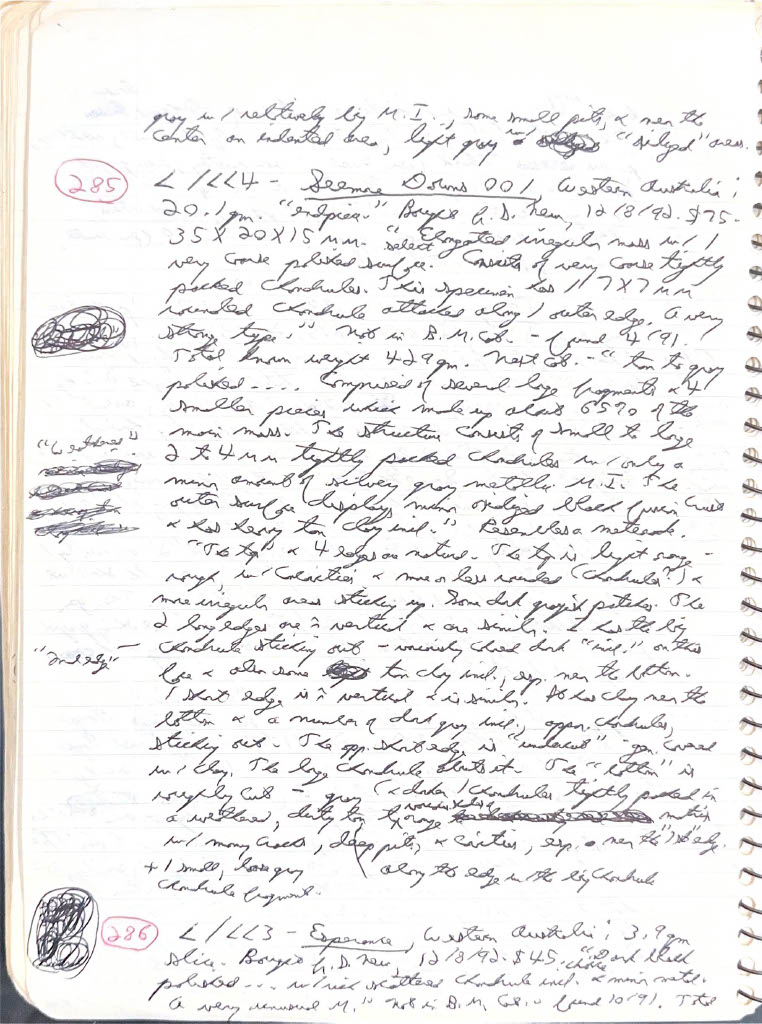 gray w/ relatively big M.I., some small pits, & near the
center an indented area, light gray w/ "sludged" areas.
285 L/LL4 - Seemore Downs 001, Western Australia;
20.1 gm. "endpiece." Bought G.D. New, 12/8/92. $75-
35 X 20 X 15 mm. "select Elongated irregular mass w/ 1
very coarse polished surface. Consists of very coarse tightly
packed chondrules. This specimen has 1 7X7 mm
rounded chondrule attached along 1 outer edge. A very
strong type." Not in B.M. Cat. - found 4/91.
Total known weight 429 gm. Next Cat. - "tan to gray
polished .... Comprised of several large fragments & 4
smaller pieces which make up about 65% of the
main mass. The structure consists of small to large
2 to 4 mm tightly packed chondrules w/ only a
minor amount of silvery gray metallic M.I. The
outer surface displays minor oxidized black fusion crust
& has heavy tan clay incl." Resembles a meteorite.
"The top" & 4 edges are natural. The top is light orange -
rough, w/ cavities & more or less rounded (chondrules?) &
more irregular areas sticking up. Some dark grayish patches. The
2 long edges are vertical & are similar. 1 has the big
"2nd edge" - chondrule sticking out - variously shaped dark "incl." on this
face & also some tan clay incl., esp. near the bottom.
1 short edge is vertical & is similar. It has clay near the
bottom & a number of dark gray incl., appar. chondrules,
sticking out. The opp. short edge is "undercut" gen. covered
w/ clay. The large chondrule abuts it. The "bottom" is
roughly cut - gray (& darker) chondrules tightly packed in
a weathered, dirty tan & orange matrix
w/ many cracks, deep pits, & cavities, esp. near the edge.
+ 1 small, loose gray along the edge w/ the big chondrule
chondrule fragment.
286 L/LL3 - Esperance, Western Australia; 3.9 gm
slice. Bought G.D. New, 12/8/92. $45. "Dark black
polished .... w/ rich scattered chondrule incl. & minor metal.
A very unusual M." Not in B.M. Cat. - found 10/91. Total